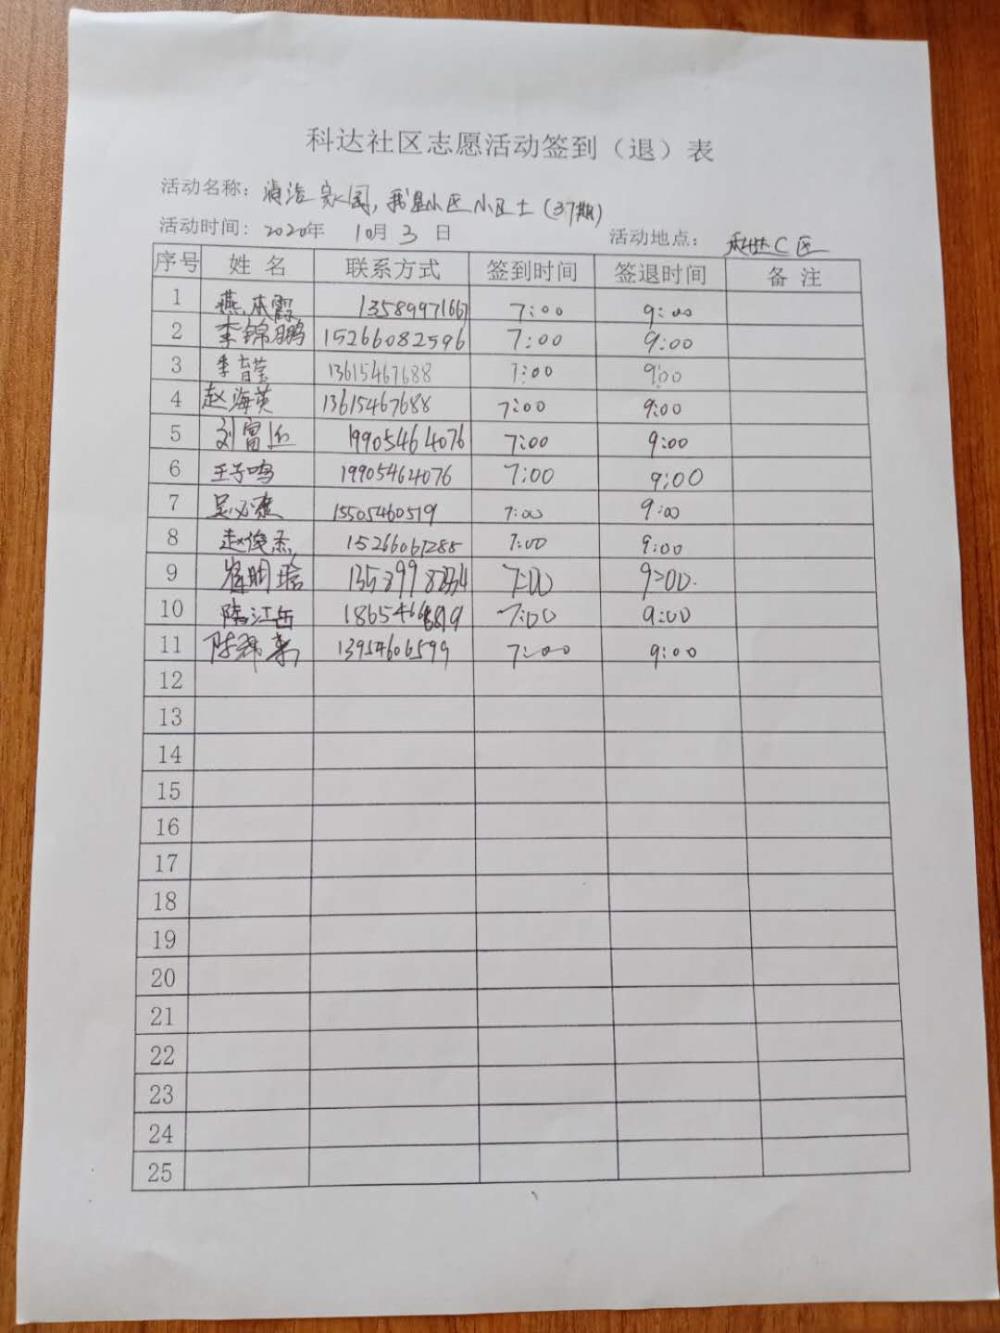 科达社区志愿活动签到（退）表
活动名称： 清洁家园，我是小区小卫士（37期）
活动时间： 2020年 10月 3 日 活动地点： 科达C区
序号 姓名 联系方式 签到时间 签退时间 备注
1 燕本霞 13589971667 7:00 9:00
2 李锦鹏 15266082596 7:00 9:00
3 季莹 13615467688 7:00 9:00
4 赵海英 13615467688 7:00 9:00
5 刘富 19905464076 7:00 9:00
6 王子鸣 19905464076 7:00 9:00
7 吴必 15505460519 7:00 9:00
8 赵俊杰 7:00 9:00
9 崔明 7:00 9:00
10 陈江岳 7:00 9:00
11 陈 13954606599 7:00 9:00
12
13
14
15
16
17
18
19
20
21
22
23
24
25